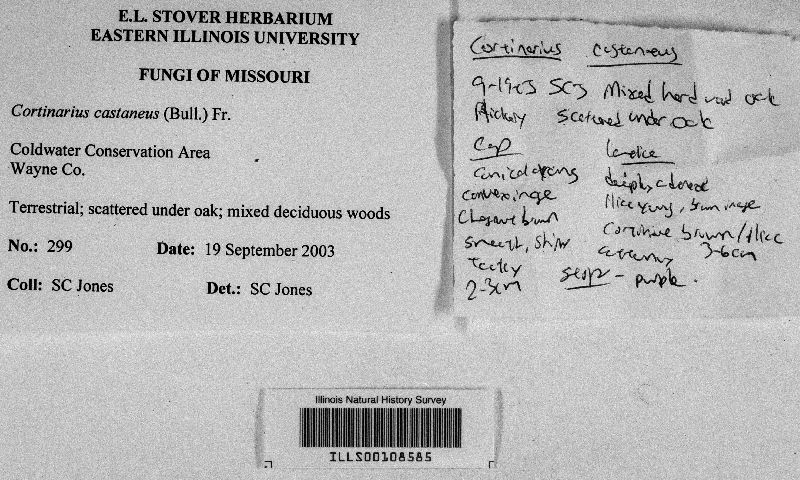 E.L. STOVER HERBARIUM
EASTERN ILLINOIS UNIVERSITY
FUNGI OF MISSOURI
Cortinarius castaneus (Bull.) Fr.
Coldwater Conservation Area
Wayne Co.
Terrestrial; scattered under oak; mixed deciduous woods
No.: 299 Date: 19 September 2003
Coll: SC Jones Det.: SC Jones
Cortinarius castaneus
9-19-03 SCJ Mixed hardwood oak
Hickory scattered under oak
Cap
conical young
convex in age
brown
smooth, shiny
2-3cm
lilac young, brown in age
brown/lilac
3-6cm
- purple.
Illinois Natural History Survey
ILLS00108585